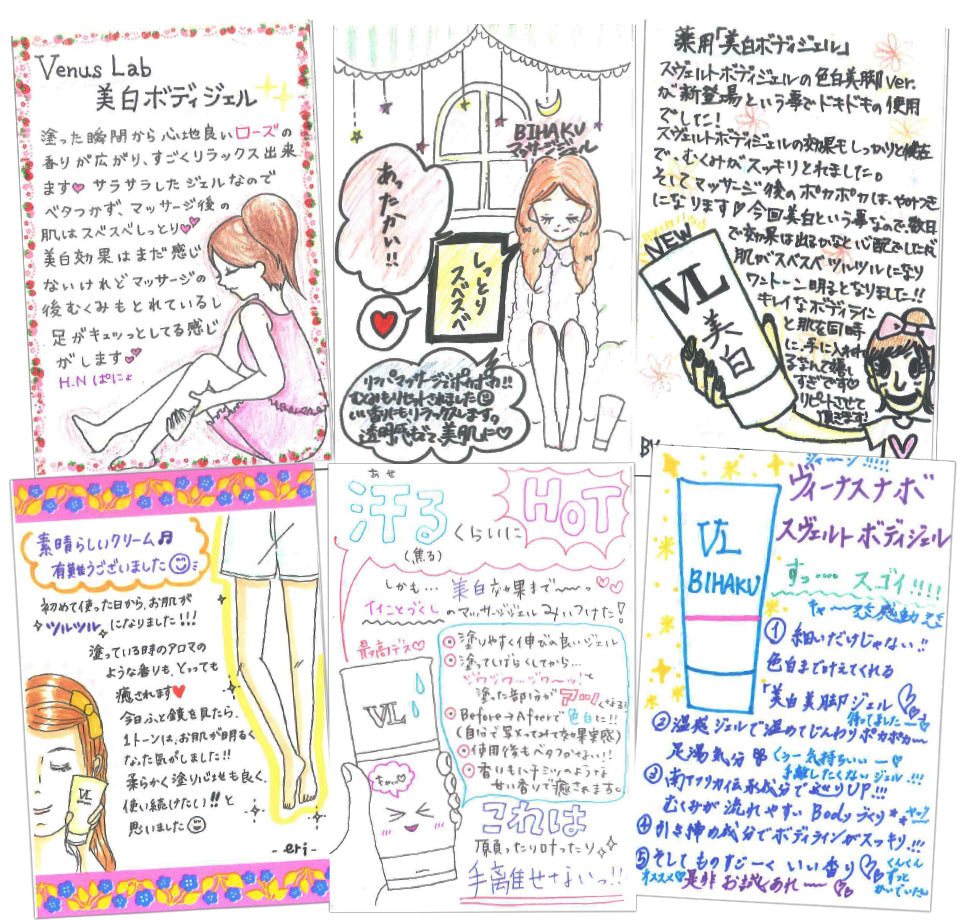 Venus Lab
美白ボディジェル
塗った瞬間から心地良いローズの
香りが広がり、すごくリラックス出来
ます♥ サラサラしたジェルなので
ベタつかず、マッサージ後の
肌はスベスベしっとり♥
美白効果はまだ感じ
ないけれどマッサージの
後むくみもとれているし
足がキュッっとしてる感じ
がします♥
H.N ぱにょ
BIHAKU
マッサージジェル
あったかい!!
しっとり
スベスベ
リンパマッサージでポカポカ!!
むくみもリセットされました
いい香りもリラックスします。
透明感がでて美肌に♡
薬用「美白ボディジェル」
スヴェルトボディジェルの色白美脚ver.
が新登場という事でドキドキの使用
でした!
スヴェルトボディジェルの効果もしっかりと健在
で、むくみがスッキリとれました。
そしてマッサージ後のポカポカは、やみつき
になります♡今回美白という事なので、数日
で効果は出るかなと心配でしたが
肌がスベスベツルツルになり
ワントーン明るくなりました!!
キレイなボディライン
と肌を同時
に、手に入れれ
るなんて嬉し
すぎです♡
リピートさせて
頂きます!
NEW
VL
美白
BY
素晴らしいクリーム♬
有難うございました
初めて使った日から、お肌が
ツルツルになりました!!!
塗っている時のアロマの
ような香りも、とっても
癒されます♥
今日ふと鏡を見たら、
1トーンは、お肌が明るく
なった気がしました!!
柔らかく塗り心地も良く、
使い続けたい!!と
思いました
VL
- eri -
あせ
汗るくらいに HOT
(焦る)
しかも… 美白効果まで〜〜っ♡♡
イイことづくしのマッサージジェルみいつけた!
最高デス♡
塗りやすく伸びの良いジェル
塗ってしばらくしてから…
ジワジワ〜ッジワ〜ッ!と
塗った部分がアツくなる!
Before→Afterで色白に!!
(自分で写メってみて効果実感)
使用後もベタつかない!!
香りもハチミツのような
甘い香りで癒されます。
VL
これは
願ったり叶ったり
手離せないっ!!
ジャーン!!!!!
ヴィーナスナボ
スヴェルトボディジェル
すっ…… スゴイ!!!!
VL
BIHAKU
① 細いだけじゃない!!
色白まで叶えてくれる
「美白美脚ジェル
待ってましたー♡
② 温感ジェルで温めてじんわりポカポカ〜
足湯気分
くぅー気持ちいいー♡
手離したくないジェル!!!
③ 南アフリカ伝承成分で巡りUP!!!
むくみが流れやすいBodyづくり
④ 引き締め成分でボディラインがスッキリ!!!
⑤ そしてものすごーくいい香り♡
くんくん
ずっと
かいでいたい
オススメ♡是非お試しあれー♡